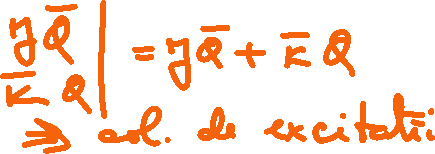 JQ̅ | = JQ̅ + K̅ Q
K̅ Q |
⇒ col. de excitații